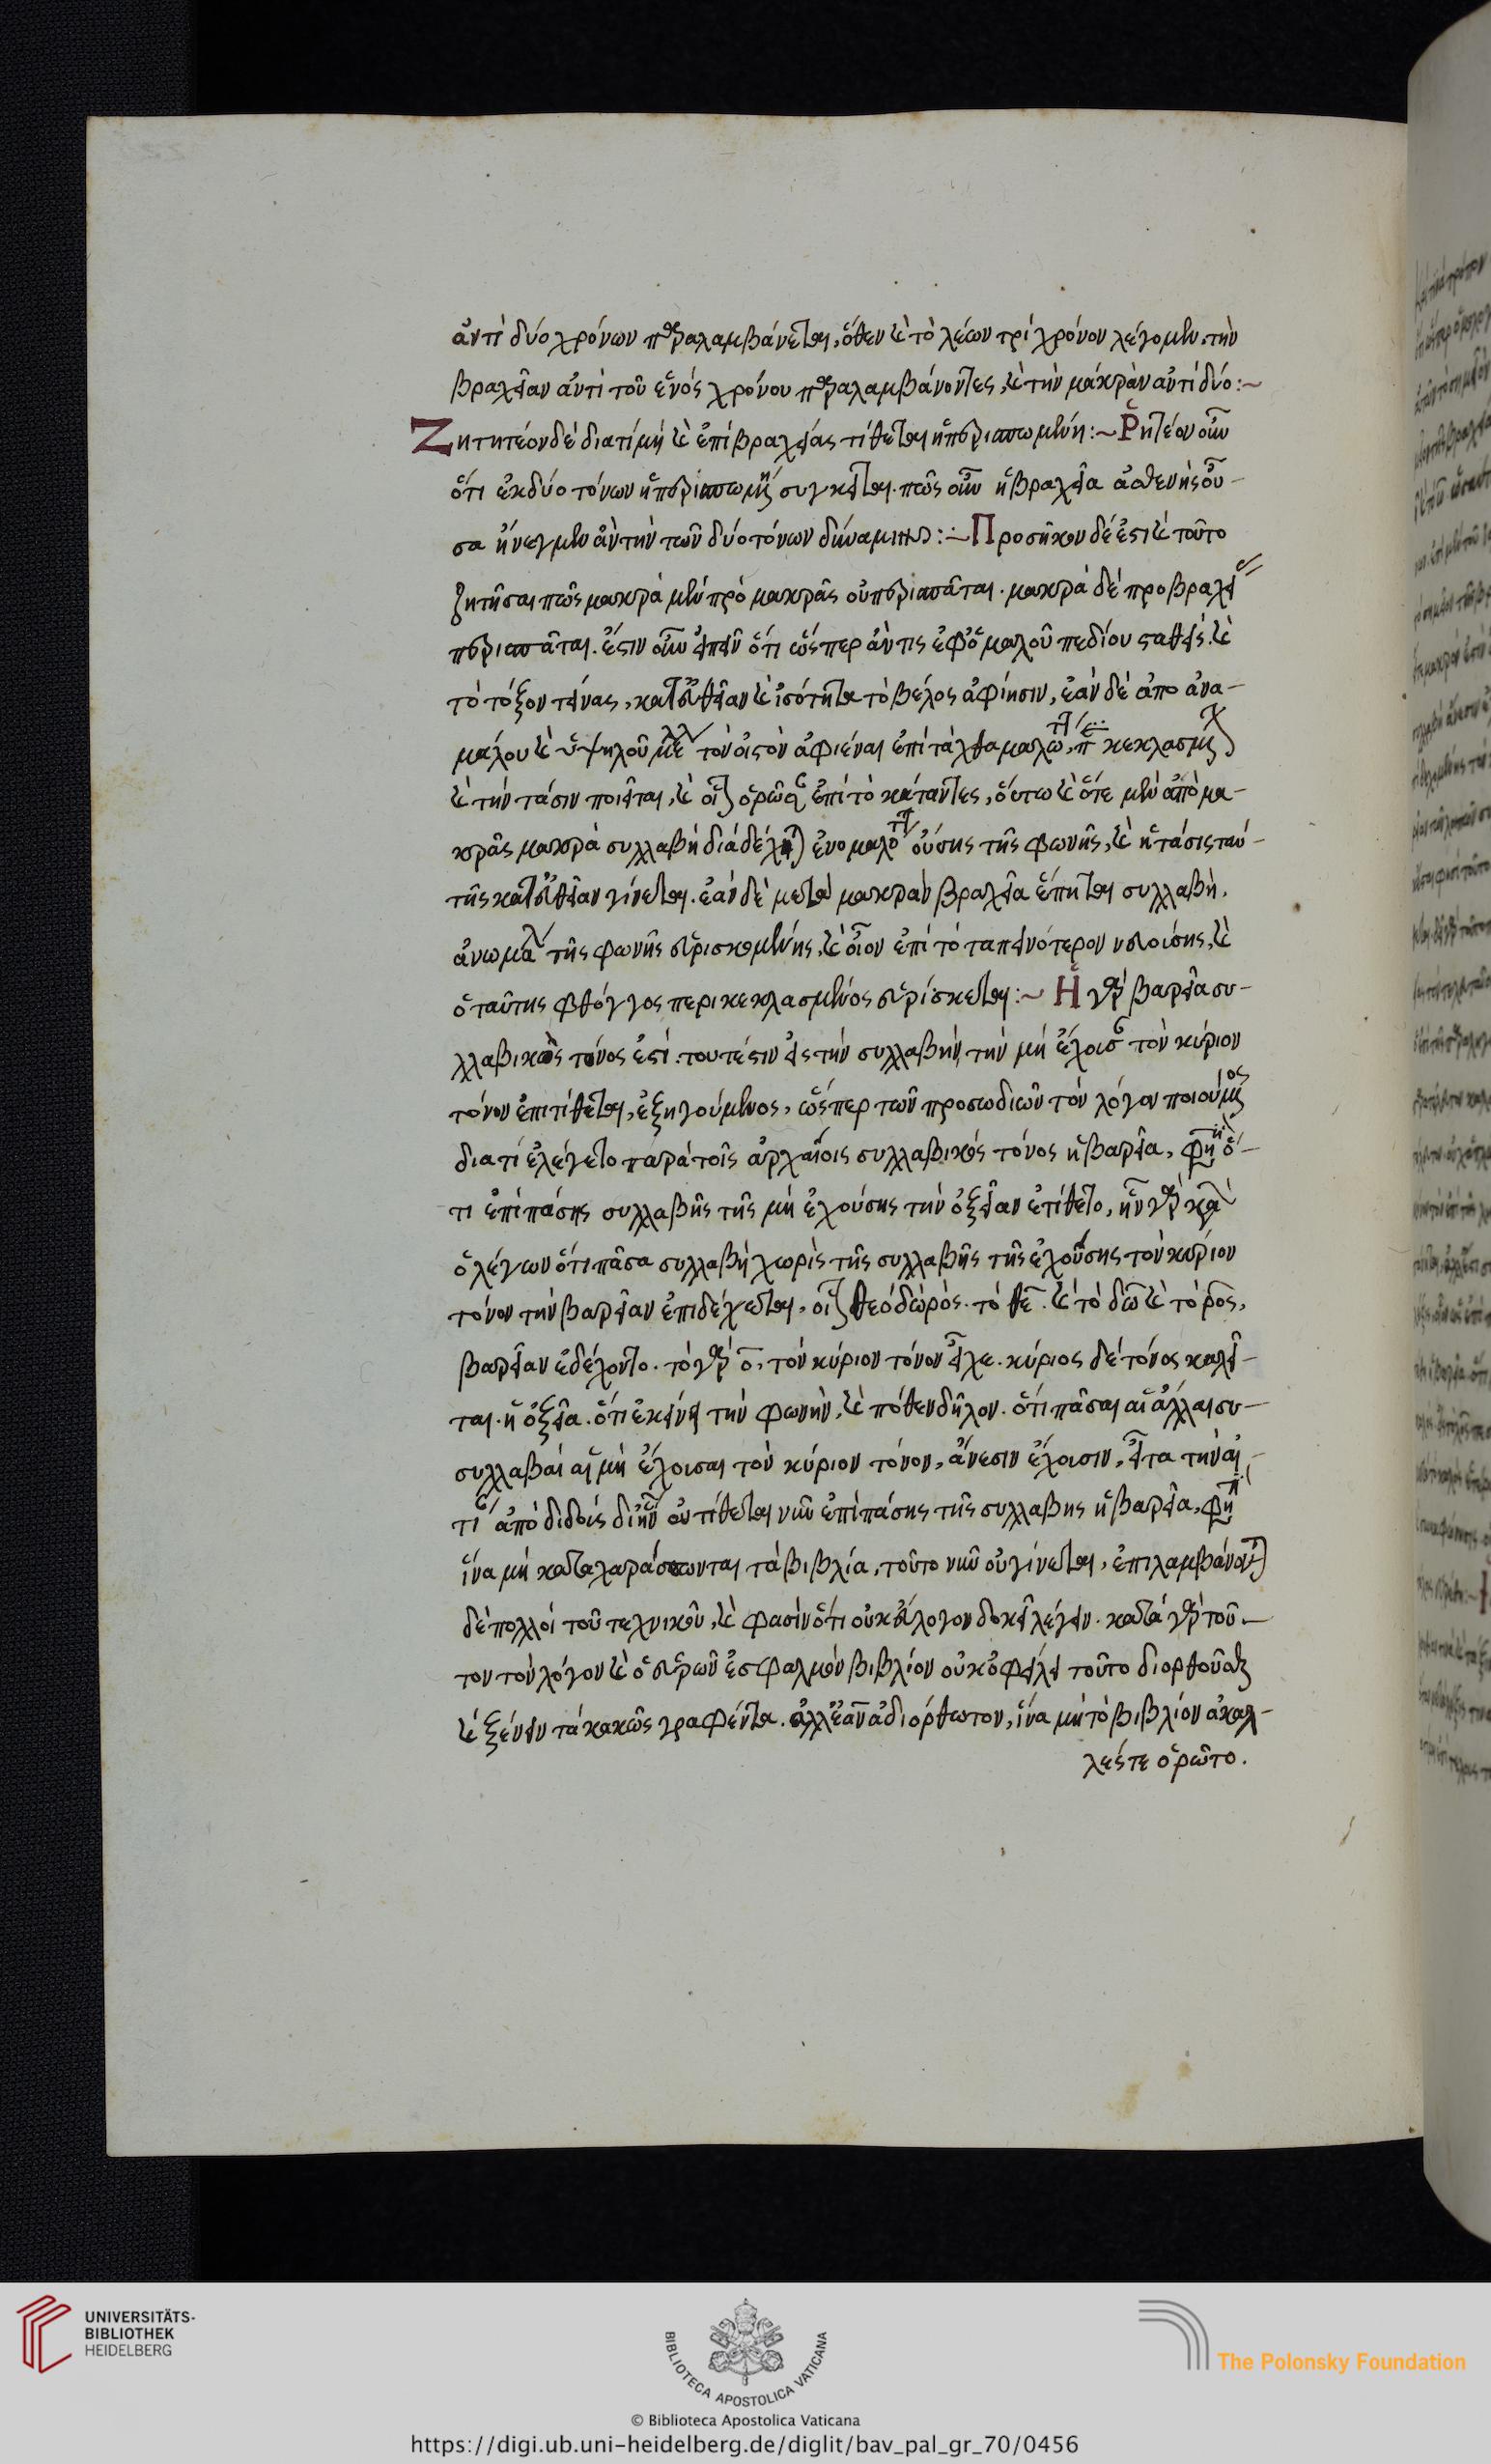 ἀντὶ δύο χρόνων παραλαμβάνεται, ὅθεν καὶ τὸ λέων τρίχρονον λέγομεν, τὴν
βραχεῖαν ἀντὶ τοῦ ἑνός χρόνου παραλαμβάνοντες, καὶ τὴν μακρὰν αντὶ δύο:~
Ζητητέον δὲ διατί μὴ καὶ ἐπὶ βραχείας τίθεται ἡ περισπωμένη:~ Ῥητέον οὖν
ὅτι ἐκ δύο τόνων ἡ περισπωμένη συγκεῖται. πῶς οὖν ἡ βραχεῖα ἀσθενὴς οὖ-
σα ἤνεγκεν ἂν τὴν τῶν δύο τόνων δύναμιν:~ Προσῆκον δέ ἐστι καὶ τοῦτο
ζητῆσαι πῶς μακρὰ μὲν πρὸ μακρᾶς οὐ περισπᾶται. μακρὰ δὲ προ βραχείας
περισπᾶται. ἔστιν οὖν εἰπεῖν ὅτι ὥσπερ ἄν τις ἐφ' ὁμαλοῦ πεδίου σταθείς. καὶ
τὸ τόξον τείνας, κατευθεῖαν καὶ ἰσότητα τὸ βέλος ἀφίησιν, ἐὰν δὲ ἀπο ἀνω-
μάλου καὶ ὑψηλοῦ μέλλ τὸν οἰστὸν ἀφιέναι ἐπὶ τὰ χθαμαλώτ, κεκλασμ
καὶ τὴν τάσιν ποιεῖται, καὶ ὁρῶσ ἐπὶ τὸ κάταντες, οὕτω καὶ ὅτε μὲν ἀπὸ μα-
κρᾶς μακρὰ συλλαβὴ διαδέχηται ἐνομαλοτ οὔσης τῆς φωνῆς, καὶ ἡ τάσις ταύ-
της κατευθεῖαν γίνεται. ἐὰν δὲ μετὰ μακρὰν βραχεῖα ἕπηται συλλαβὴ,
ἀνωμάλ τῆς φωνῆς εὑρισκομένης, καὶ οἷον ἐπὶ τὸ ταπεινότερον νευούσης, καὶ
ὁ ταύτης φθόγγος περικεκλασμένος εὑρίσκεται:~ Ἡ γὰρ βαρεῖα συ-
λλαβικὸς τόνος ἐστί. τουτέστιν εἰς τὴν συλλαβὴν, τὴν μὴ ἔχουσ τὸν κύριον
τόνον ἐπιτίθεται, ἐξηγούμενος, ὥσπερ τῶν προσωδιῶν τὸν λόγον ποιούμενος
διατί ἐλέγετο παρὰ τοῖς ἀρχαίοις συλλαβικός τόνος ἡ βαρεῖα, φησὶν ὅ-
τι ἐπὶ πάσης συλλαβῆς τῆς μὴ ἐχούσης τὴν ὀξεῖαν ἐτίθετο, ἦν γὰρ κα
ὁ λέγων ὅτι πᾶσα συλλαβὴ χωρὶς τῆς συλλαβῆς τῆς ἐχούσης τὸν κύριον
τόνον τὴν βαρεῖαν ἐπιδέχεται, οἷον θεόδωρὸς. τὸ θε. καὶ τὸ δω καὶ τὸ ρος,
βαρεῖαν ἐδέχοντο. τὸ γὰρ ο, τὸν κύριον τόνον εἶχε. κύριος δὲ τόνος καλεῖ-
ται. ἡ ὀξεῖα. ὅτι ἐκτείνει τὴν φωνὴν, καὶ πόθεν δῆλον. ὅτι πᾶσαι αἱ ἄλλαι συ-
συλλαβαὶ αἱ μὴ ἔχουσαι τὸν κύριον τόνον, ἄνεσιν ἔχουσιν, εἶτα τὴν αἰ-
τί ἀπὸ διδοὺς δι' ἣν οὐ τίθεται νῦν ἐπὶ πάσης τῆς συλλαβης ἡ βαρεῖα, φησὶν
ἵνα μὴ καταχαράσσωνται τὰ βιβλία, τοῦτο νῦν οὐ γίνεται, ἐπιλαμβάνονται
δὲ πολλοὶ τοῦ τεχνικοῦ, καὶ φασὶν ὅτι οὐκ εὔλογον δοκεῖ λέγειν. κατὰ γὰρ τοῦ-
τον τὸν λόγον καὶ ὁ εὑρῶν ἐσφαλμένον βιβλίον οὐκ ὀφείλει τοῦτο διορθοῦσθαι
καὶ ξέειν τὰ κακῶς γραφέντα. ἀλλ' ἐᾶν ἀδιόρθωτον, ἵνα μὴ τὸ βιβλίον ἀκαλ-
λέστε ὁρῶτο.
UNIVERSITÄTS-
BIBLIOTHEK
HEIDELBERG
BIBLIOTECA APOSTOLICA VATICANA
The Polonsky Foundation
© Biblioteca Apostolica Vaticana
https://digi.ub.uni-heidelberg.de/diglit/bav_pal_gr_70/0456